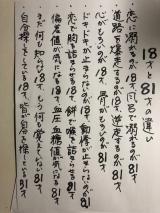 18才と81才の違い
恋に溺れるのが18才、風呂で溺れるのが81才
道路を爆走するのが18才、逆走するのが81才
心がもろいのが18才、骨がもろいのが81才
ドキドキが止まらないのが18才、動悸が止まらないのが81才
恋で胸を詰まらせる18才、餅で喉を詰まらせる81才
偏差値が気になる18才、血圧・血糖値が気になる81才
まだ何も知らない18才、もう何も覚えていない81才
自分探しをしている18才、皆が自分を探している81才